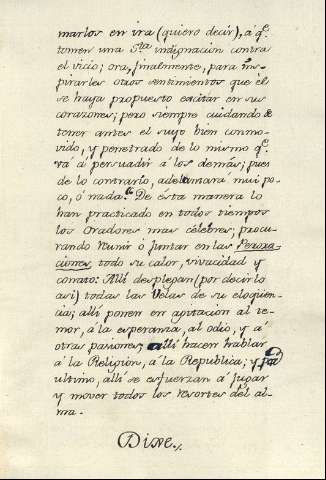 marlos en ira (quiero decir), á qᵉ
tomen una Sᵗᵃ indignacion contra
el vicio; ora, finalmente, para ins-
pirarles otros sentimientos que él
se haya propuesto excitar en sus
corazones; pero siempre cuidando de
tener antes el suyo bien conmo-
vido, y penetrado de lo mismo qᵉ
vá á persuadir á los demás; pues
de lo contrario, adelantará mui po-
co, ó nada. De esta manera lo
han practicado en todos tiempos
los Oradores mas célebres; procu-
rando reunir ó juntar en las Perora-
ciones, todo su calor, vivacidad y
conato: Allí desplegan (por decirlo
asi) todas las Velas de su eloqüen-
cia; allí ponen en agitacion al te-
mor, á la esperanza, al odio, y á
otras pasiones; allí hacen hablar
á la Religion, á la Republica; y por
ultimo, allí se esfuerzan á jugar
y mover todos los resortes del al-
ma.
Dixe.